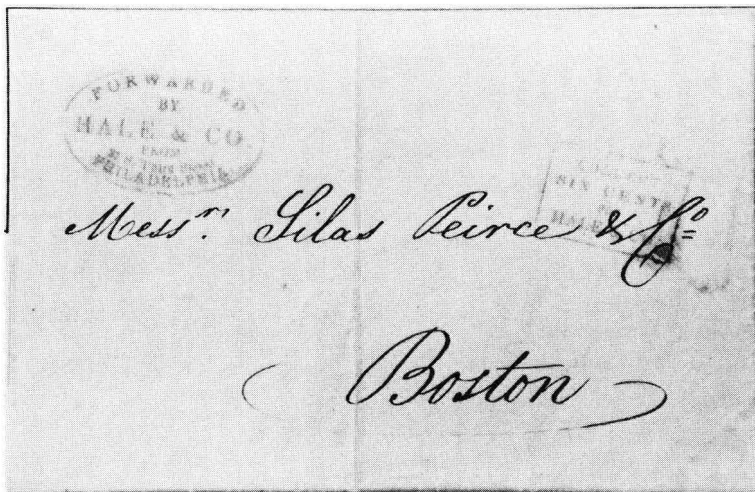 FORWARDED
BY
HALE & CO.
FROM
PHILADELPHIA
SIX CENTS
HALE
Mess.rs Silas Peirce & Co
Boston